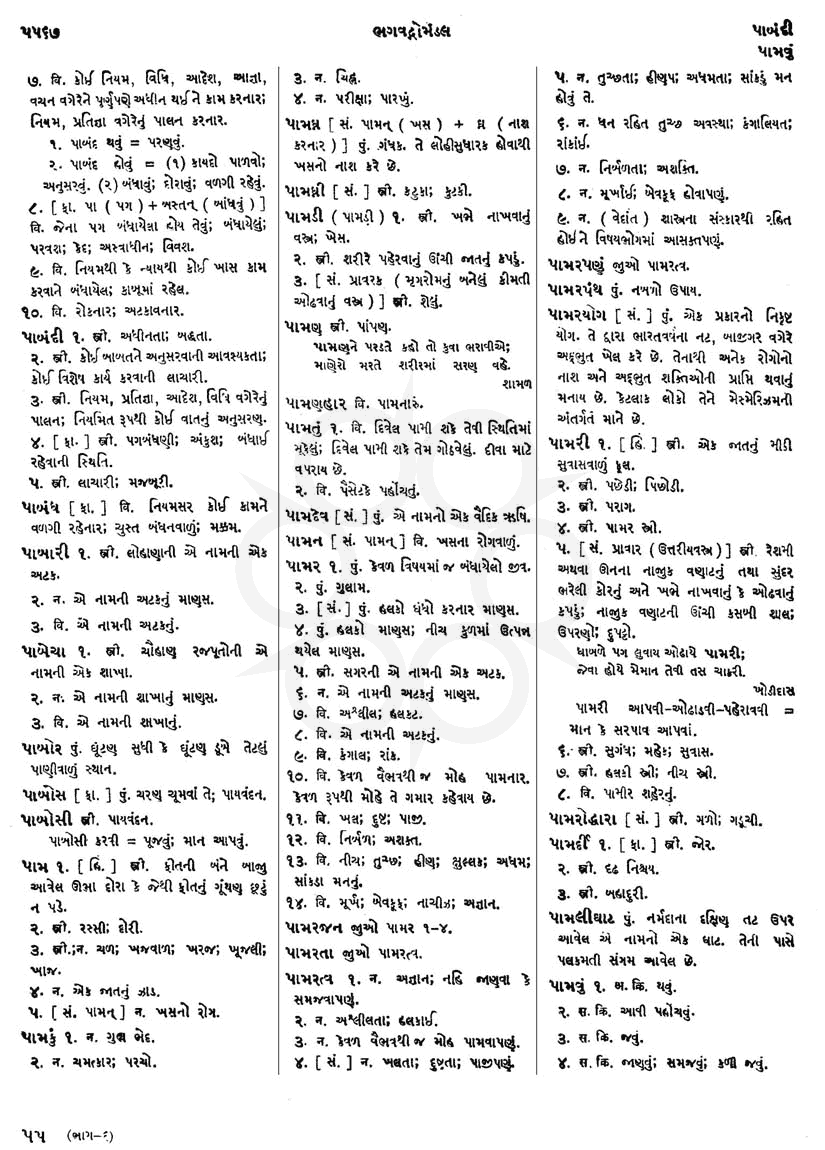 ૫૫૬૭
ભગવદ્ગોમંડલ
પાબંદી
પામવું
૭. વિ. કોઈ નિયમ, વિધિ, આદેશ, આજ્ઞા,
વચન વગેરેને પૂર્ણપણે અધીન થઈને કામ કરનાર;
નિયમ, પ્રતિજ્ઞા વગેરેનું પાલન કરનાર.
૧. પાબંદ થવું = પરણવું.
૨. પાબંદ હોવું = (૧) કાયદો પાળવો;
અનુસરવું. (૨) બંધાવું; દોરાવું; વળગી રહેવું.
૮. [ ફા. પા ( પગ ) + બસ્તન ( બાંધવું ) ]
વિ. જેના પગ બંધાયેલા હોય તેવું; બંધાયેલું;
પરવશ; કેદ; અસ્વાધીન; વિવશ.
૯. વિ. નિયમથી કે ન્યાયથી કોઈ ખાસ કામ
કરવાને બંધાયેલ; કાબૂમાં રહેલ.
૧૦. વિ. રોકનાર; અટકાવનાર.
પાબંદી ૧. સ્ત્રી. અધીનતા; બદ્ધતા.
૨. સ્ત્રી. કોઈ બાબતને અનુસરવાની આવશ્યકતા;
કોઈ વિશેષ કાર્ય કરવાની લાચારી.
૩. સ્ત્રી. નિયમ, પ્રતિજ્ઞા, આદેશ, વિધિ વગેરેનું
પાલન; નિયમિત રૂપથી કોઈ વાતનું અનુસરણ.
૪. [ ફા. ] સ્ત્રી. પગબંધણી; અંકુશ; બંધાઈ
રહેવાની સ્થિતિ.
૫. સ્ત્રી. લાચારી; મજબૂરી.
પાબંધ [ ફા. ] વિ. નિયમસર કોઈ કામને
વળગી રહેનાર; ચુસ્ત બંધનવાળું; મક્કમ.
પાબારી ૧. સ્ત્રી. લોહાણાની એ નામની એક
અટક.
૨. ન. એ નામની અટકનું માણસ.
૩. વિ. એ નામની અટકનું.
પાબેચા ૧. સ્ત્રી. ચૌહાણ રજપૂતોની એ
નામની એક શાખા.
૨. ન. એ નામની શાખાનું માણસ.
૩. વિ. એ નામની શાખાનું.
પાબોર પું. ઘૂંટણ સુધી કે ઘૂંટણ ડૂબે તેટલું
પાણીવાળું સ્થાન.
પાબોસ [ ફા. ] પું. ચરણ ચૂમવાં તે; પાયવંદન.
પાબોસી સ્ત્રી. પાયવંદન.
પાબોસી કરવી = પૂજવું; માન આપવું.
પામ ૧. [ હિં. ] સ્ત્રી. ફીતની બંને બાજુ
આવેલ ઊભા દોરા કે જેથી ફીતનું ગૂંથણ છૂટું
ન પડે.
૨. સ્ત્રી. રસ્સી; દોરી.
૩. સ્ત્રી.;ન. ચળ; ખજવાળ; ખરજ; ખૂજલી;
ખાજ.
૪. ન. એક જાતનું ઝાડ.
૫. [ સં. પામન્ ] ન. ખસનો રોગ.
પામકું ૧. ન. ગુહ્ય ભેદ.
૨. ન. ચમત્કાર; પરચો.
૩. ન. ચિહ્ન.
૪. ન. પરીક્ષા; પારખું.
પામઘ્ન [ સં. પામન્ ( ખસ ) + ઘ્ન ( નાશ
કરનાર ) ] પું. ગંધક. તે લોહીસુધારક હોવાથી
ખસનો નાશ કરે છે.
પામઘ્ની [ સં. ] સ્ત્રી. કટુકા; કુટકી.
પામડી ( પામડ઼ી ) ૧. સ્ત્રી. ખભે નાખવાનું
વસ્ત્ર; ખેસ.
૨. સ્ત્રી. શરીરે પહેરવાનું ઊંચી જાતનું કપડું.
૩. [ સં. પ્રાવરક ( મૃગરોમનું બનેલું કીમતી
ઓઢવાનું વસ્ત્ર ) ] સ્ત્રી. શેલું.
પામણ સ્ત્રી. પાંપણ.
પામણને પરડતે કહો તો કુવા ભરાવીએ;
માણેરો મરતે શરીરમાં સરણ વહે.
શામળ
પામણહાર વિ. પામનારું.
પામતું ૧. વિ. દિવેલ પામી શકે તેવી સ્થિતિમાં
મૂકેલું; દિવેલ પામી શકે તેમ ગોઠવેલું. દીવા માટે
વપરાય છે.
૨. વિ. પૈસેટકે પહોંચતું.
પામદેવ [ સં. ] પું. એ નામનો એક વૈદિક ઋષિ.
પામન [ સં. પામન્ ] વિ. ખસના રોગવાળું.
પામર ૧. પું. કેવળ વિષયમાં જ બંધાયેલો જીવ.
૨. પું. ગુલામ.
૩. [ સં. ] પું. હલકો ધંધો કરનાર માણસ.
૪. પું. હલકો માણસ; નીચ કુળમાં ઉત્પન્ન
થયેલ માણસ.
૫. સ્ત્રી. સગરની એ નામની એક અટક.
૬. ન. એ નામની અટકનું માણસ.
૭. વિ. અશ્લીલ; હલકટ.
૮. વિ. એ નામની અટકનું.
૯. વિ. કંગાલ; રાંક.
૧૦. વિ. કેવળ વૈભવથી જ મોહ પામનાર.
કેવળ રૂપથી મોહે તે ગમાર કહેવાય છે.
૧૧. વિ. ખલ; દુષ્ટ; પાજી.
૧૨. વિ. નિર્બળ; અશક્ત.
૧૩. વિ. નીચ; તુચ્છ; હીણ; ક્ષુલ્લક; અધમ;
સાંકડા મનનું.
૧૪. વિ. મૂર્ખ; બેવકૂફ; નાચીઝ; અજ્ઞાન.
પામરજન જુઓ પામર ૧-૪.
પામરતા જુઓ પામરત્વ.
પામરત્વ ૧. ન. અજ્ઞાન; નહિ જાણવા કે
સમજવાપણું.
૨. ન. અશ્લીલતા; હલકાઈ.
૩. ન. કેવળ વૈભવથી જ મોહ પામવાપણું.
૪. [ સં. ] ન. ખલતા; દુષ્ટતા; પાજીપણું.
૫. ન. તુચ્છતા; હીણપ; અધમતા; સાંકડું મન
હોવું તે.
૬. ન. ધન રહિત તુચ્છ અવસ્થા; કંગાલિયત;
રાંકાઈ.
૭. ન. નિર્બળતા; અશક્તિ.
૮. ન. મૂર્ખાઈ; બેવકૂફ હોવાપણું.
૯. ન. ( વેદાંત ) શાસ્ત્રના સંસ્કારથી રહિત
હોઈને વિષયભોગમાં આસક્તપણું.
પામરપણું જુઓ પામરત્વ.
પામરપંથ પું. નબળો ઉપાય.
પામરયોગ [ સં. ] પું. એક પ્રકારનો નિકૃષ્ટ
યોગ. તે દ્વારા ભારતવર્ષના નટ, બાજીગર વગેરે
અદ્ભુત ખેલ કરે છે. તેનાથી અનેક રોગોનો
નાશ અને અદ્ભુત શક્તિઓની પ્રાપ્તિ થવાનું
મનાય છે. કેટલાક લોકો તેને મેસ્મેરિઝમની
અંતર્ગત માને છે.
પામરી ૧. [ હિં. ] સ્ત્રી. એક જાતનું મીઠી
સુવાસવાળું ફૂલ.
૨. સ્ત્રી. પછેડી; પિછોડી.
૩. સ્ત્રી. પરાગ.
૪. સ્ત્રી. પામર સ્ત્રી.
૫. [ સં. પ્રાવાર ( ઉત્તરીયવસ્ત્ર ) ] સ્ત્રી. રેશમી
અથવા ઊનના નાજુક વણાટનું તથા સુંદર
ભરેલી કોરનું અને ખભે નાખવાનું કે ઓઢવાનું
કપડું; નાજુક વણાટની ઊંચી કસબી શાલ;
ઉપરણો; દુપટ્ટો.
ધાબળે પગ લુવાય ઓઢાયે પામરી;
જેવા હોયે મેમાન તેવી તસ ચાકરી.
ખોડીદાસ
પામરી આપવી-ઓઢાડવી-પહેરાવવી =
માન કે સરપાવ આપવાં.
૬. સ્ત્રી. સુગંધ; મહેક; સુવાસ.
૭. સ્ત્રી. હલકી સ્ત્રી; નીચ સ્ત્રી.
૮. વિ. પામીર શહેરનું.
પામરોદ્ધારા [ સં. ] સ્ત્રી. ગળો; ગડૂચી.
પામર્દી ૧. [ ફા. ] સ્ત્રી. જોર.
૨. સ્ત્રી. દૃઢ નિશ્ચય.
૩. સ્ત્રી. બહાદુરી.
પામલીઘાટ પું. નર્મદાના દક્ષિણ તટ ઉપર
આવેલ એ નામનો એક ઘાટ. તેની પાસે
પલકમતી સંગમ આવેલ છે.
પામવું ૧. અ. ક્રિ. થવું.
૨. સ. ક્રિ. આવી પહોંચવું.
૩. સ. ક્રિ. જવું.
૪. સ. ક્રિ. જાણવું; સમજવું; કળી જવું.
૫૫ (ભાગ-૬)